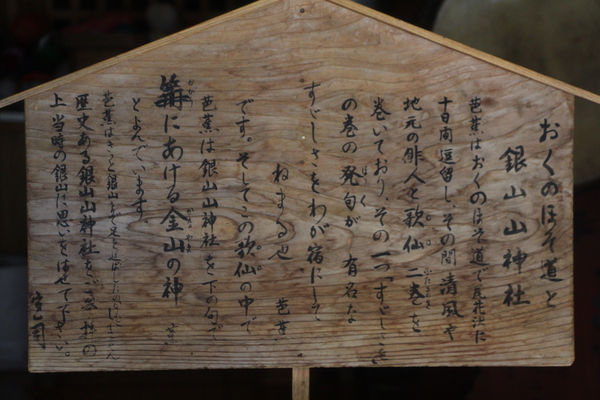 おくのほそ道と
銀山山神社
芭蕉はおくのほそ道で尾花沢に
十日間逗留し、その間清風や
地元の俳人と歌仙二巻を
巻いており、その一つすゞしさを
の巻の発句が有名な
すゞしさをわが宿にして
ねまる也 芭蕉
です。そしてこの歌仙の中で
芭蕉は銀山山神社を下の句で
篝にあける金山の神
とよんでいます。
芭蕉はきっと銀山まで足を
歴史ある銀山山神社をご参拝の
上当時の銀山に思いをはせて下さい。
宮司